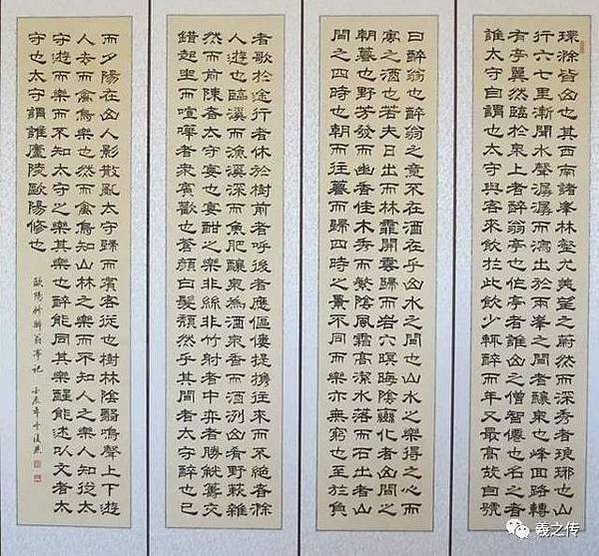 環滁皆山也其西南諸峯林壑尤美望之蔚然而深秀者琅琊也山
行六七里漸聞水聲潺潺而瀉出於兩峯之間者釀泉也峰回路轉
有亭翼然臨於泉上者醉翁亭也作亭者誰山之僧智僊也名之者
誰太守自謂也太守與客來飲於此飲少輒醉而年又最高故自號
曰醉翁也醉翁之意不在酒在乎山水之間也山水之樂得之心而
寓之酒也若夫日出而林霏開雲歸而岩穴暝晦陰變化者山間之
朝暮也野芳發而幽香佳木秀而繁陰風霜高潔水落而石出者山
間之四時也朝而往暮而歸四時之景不同而樂亦無窮也至於負
者歌於途行者休於樹前者呼後者應傴僂提攜往來而不絕者滁
人遊也臨溪而漁溪深而魚肥釀泉為酒泉香而酒洌山肴野蔌雜
然而前陳者太守宴也宴酣之樂非絲非竹射者中弈者勝觥籌交
錯起坐而喧嘩者眾賓歡也蒼顏白髮頹然乎其間者太守醉也已
而夕陽在山人影散亂太守歸而賓客從也樹林陰翳鳴聲上下遊
人去而禽鳥樂也然而禽鳥知山林之樂而不知人之樂人知從太
守遊而樂而不知太守之樂其樂也醉能同其樂醒能述以文者太
守也太守謂誰廬陵歐陽修也
歐陽修醉翁亭記 壬辰年
羲之传